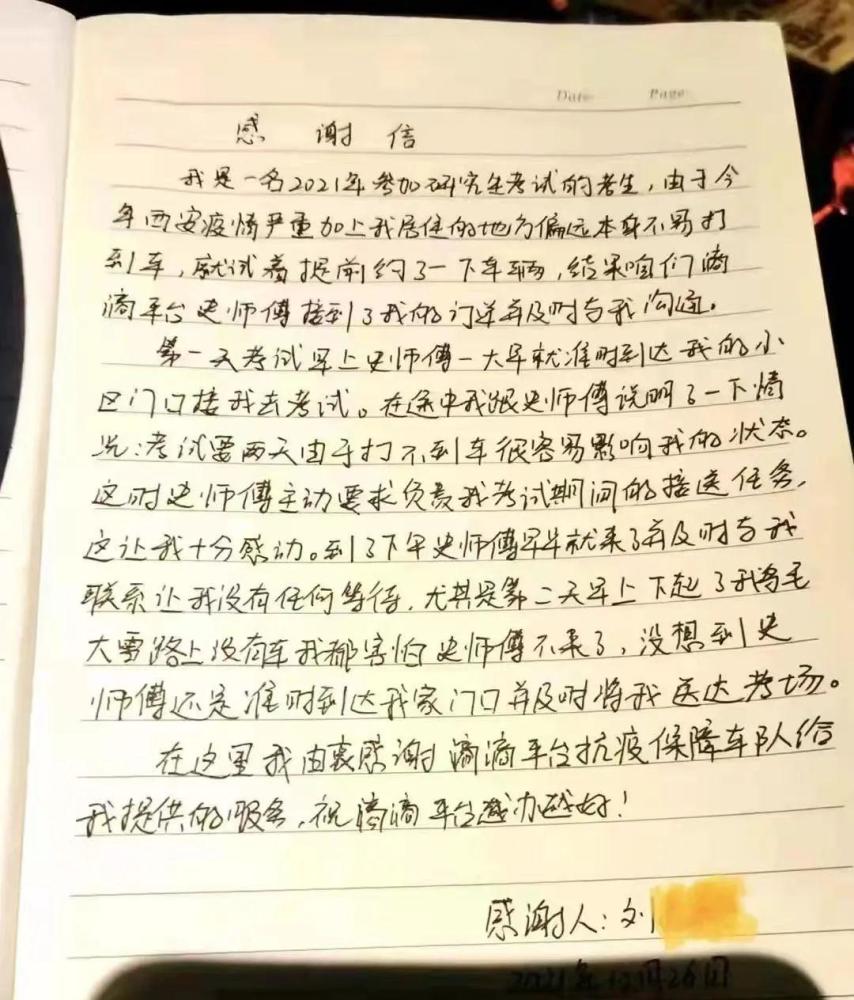 Date Page
感谢信
我是一名2021年参加研究生考试的考生，由于今
年西安疫情严重加上我居住的地方偏远本身不易打
到车，就试着提前约了一下车辆，结果咱们滴
滴平台史师傅接到了我的订单并及时与我沟通。
第一天考试早上史师傅一大早就准时到达我的小
区门口接我去考试。在途中我跟史师傅说明了一下情
况：考试要两天由于打不到车很容易影响我的状态。
这时史师傅主动要求负责我考试期间的接送任务，
这让我十分感动。到了下午史师傅早早就来了并及时与我
联系让我没有任何等待，尤其是第二天早上下起了鹅毛
大雪路上没有车我都害怕史师傅不来了，没想到史
师傅还是准时到达我家门口并及时将我送达考场。
在这里我由衷感谢滴滴平台抗疫保障车队给
我提供的服务，祝滴滴平台越办越好！
感谢人：刘
2021年12月26日